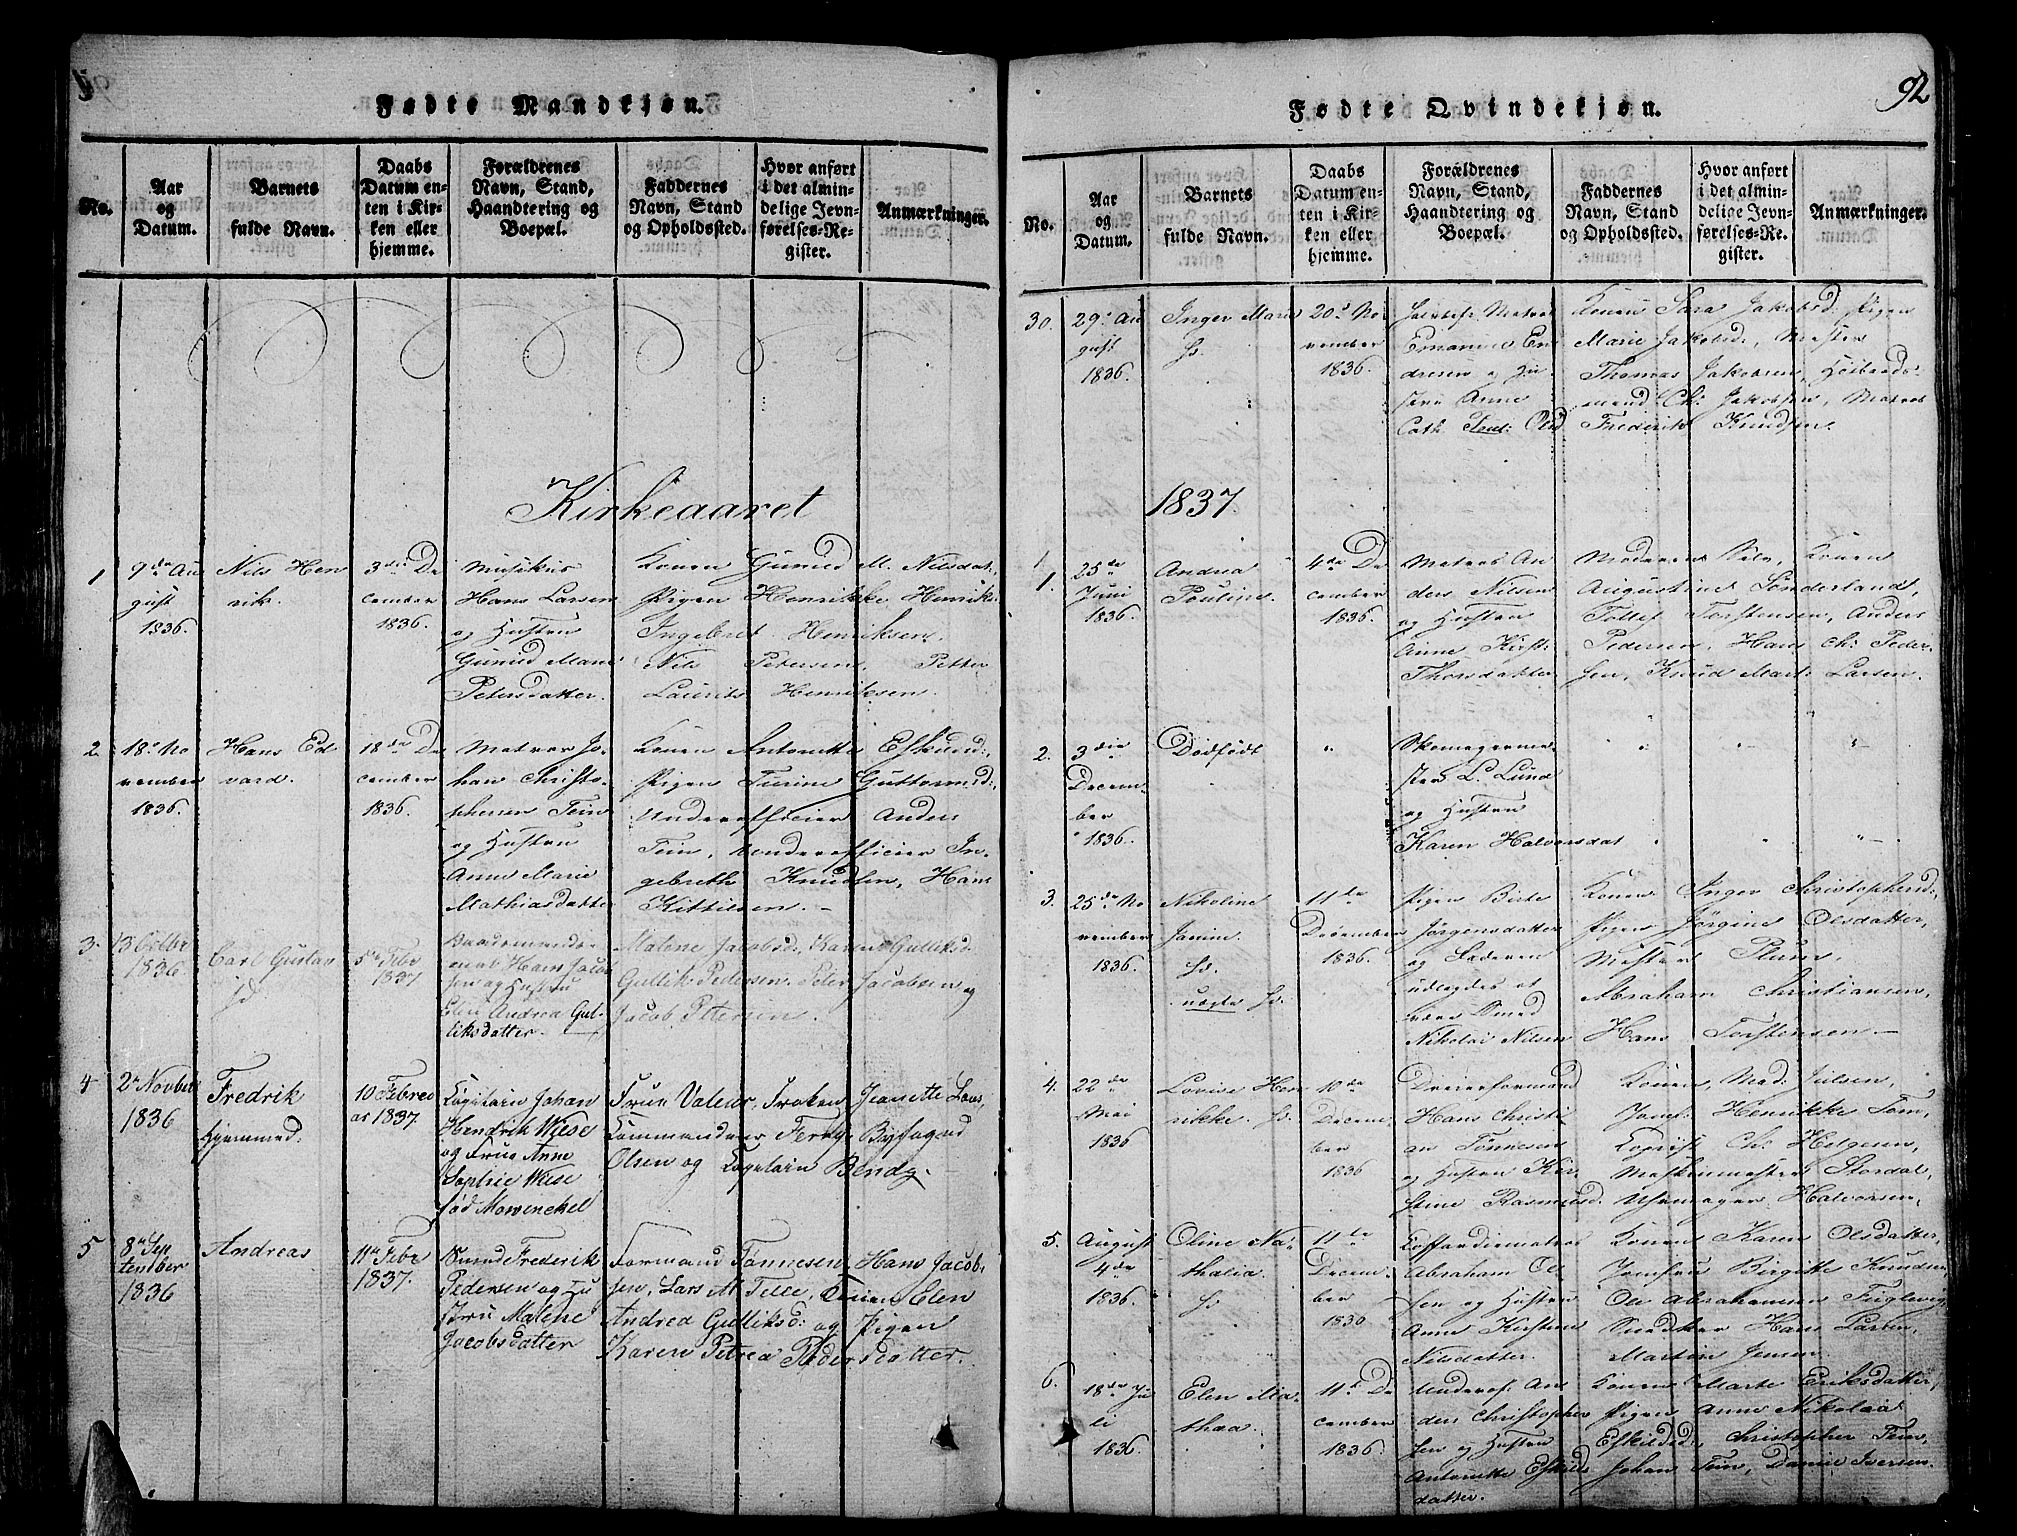 Fødte Mandkjøn.
No.
Aar
og
Datum.
Barnets
fulde Navn.
Daabs
Datum en-
ten i Kir-
ken eller
hjemme.
Forældrenes
Navn, Stand,
Haandtering og
Boepæl.
Faddernes
Navn, Stand
og Opholdssted.
Hvor anført
i det almin-
delige Jevn-
førelses-Re-
gister.
Anmærkninger.
Kirkeaaret
1
9de Au
gust
1836.
Nils Hen
rik.
3die De
cember
1836.
Musikus
Hans Larsen
og Hustru
Gunild Marie
Petersdatter.
Konen Gunild M. Nilsdat,
Pigen Henrikke Henriks
Ingebret Henriksen,
Nils Petersen, Petter
Laurits Henriksen.
2
18de No
vember
1836.
Hans Ed
vard.
18de De
cember
1836.
Matros Jo
han Christo
phersen Tein
og Hustru
Anne Marie
Mathiasdatter
Konen Antonette Eskild:
Pigen Turine Guttormsd:,
Underofficier Anders
Tein, Underofficier In-
gebreth Knudsen, Hans
Kittilsen. –
3
13 Octbr
1836.
Carl Gustav
5te Febr
1837
Hans Jacob
sen og Hustru
Elen Andrea Gul-
liksdatter. –
Malene Jacobsd, Karen Gulliksd.
Gullik Pedersen. Peter Jacobsen og
Jacob Pettersen.
4
2d Novber
1836
Fredrik
Hjemmed.
10 Februar
ar 1837.
Capitain Johan
Hendrik Wiese
og Frue Anne
Sophie Wiese
fød Mowinckel
Frue Valeur, Frøken Jeanette Laas,
Commandeur Ferry, Byfoged
Olsen og Capitain Bendz.
5
8de Sep
tember
1836
Andreas
11te Febr
1837.
Smed Frederik
Pedersen og Hu
stru Malene
Jacobsdatter
Formand Tønnesen, Hans Jacob-
sen, Lars M. Felle, Konen Elen
Andrea Gulliksd: og Pigen
Karen Petrea Pedersdatter.
92
Fødte Qvindekjøn.
No.
Aar
og
Datum.
Barnets
fulde Navn.
Daabs
Datum en-
ten i Kir-
ken eller
hjemme.
Forældrenes
Navn, Stand,
Haandtering og
Boepæl.
Faddernes
Navn, Stand
og Opholdssted.
Hvor anført
i det almin-
delige Jevn-
førelses-Re-
gister.
Anmærkninger.
30.
29de Au
gust
1836.
Inger Marie
20de No
vember
1836.
Matros
Emanuel En
dresen og Hu
stru Anne
Cath. Olsd
Konen Sara Jakobsd. Pigen
Marie Jakobsd:, Mester
Thomas Jakobsen,
mand Ch: Jakobsen, Matros
Frederik Knudsen.
1837.
1.
25de
Juni
1836.
Andrea
Pouline.
4de De
cember
1836.
Matros An
ders Nilsen
og Hustru
Anne Kirst:
Thorsdatter
Moderen Selv, Konen
Augustine Sønderland,
Tollef Torstensen, Anders
Pedersen, Hans Ch: Peder
sen, Knud Mart: Larsen.
2.
3die
Decem-
ber
1836.
Dødfødt
Skomagerme-
ster L. Lund
og Hustru
Karen Halvorsdat
3.
25de No
vember
1836.
Nikoline
Janine
uægte
11te
December
1836.
Pigen Birte
Jørgensdatter
og Faderen
udlagdes at
være Smed
Nikolai Nilsen
Konen Inger Christophersd:,
Pigen Jørgine Olsdatter,
Mester Plum,
Abraham Christiansen,
Hans Torstensen –
4.
22de
Mai
1836
Lovise Hen
rikke.
10de
Decem
ber
1836
Dreierformand
Hans Christi
an Tønnesen
og Hustru Kir-
stine Rasmusd.
Konen Mad: Julsen,
Jomf: Henrikke Tom
Copiist Ch: Helgesen,
Maskinmester Stordal,
Uhrmager Halvorsen.
5.
August
4de
1836.
Oline Na-
thalia.
11te
Decem-
ber
1836
Coffardiematros
Abraham Ol
sen og Hustru
Anne Kirstine
Nilsdatter.
Konen Karen Olsdatter,
Jomfru Birgitte Knudsen
Ole Abrahamsen Fuglevig
Snedker Hans Larsen,
Martin Jensen.
6.
18de Ju
li
1836
Elen Ma-
thea
11te De
cember
1836.
Underof: An
ders Christopher
sen og Hustru
Antonette Eskilds
datter.
Konen Marte Eriksdatter,
Pigen Anne Nikolaa
Eskildsd:, Christopher Tein,
Johan Tein, Daniel Iversen.